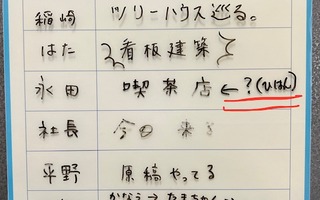 稲崎 ツリーハウス巡る。
はた 看板建築
永田 喫茶店 ←?(ひはん)
社長 今の 来る
平野 原稿やってる